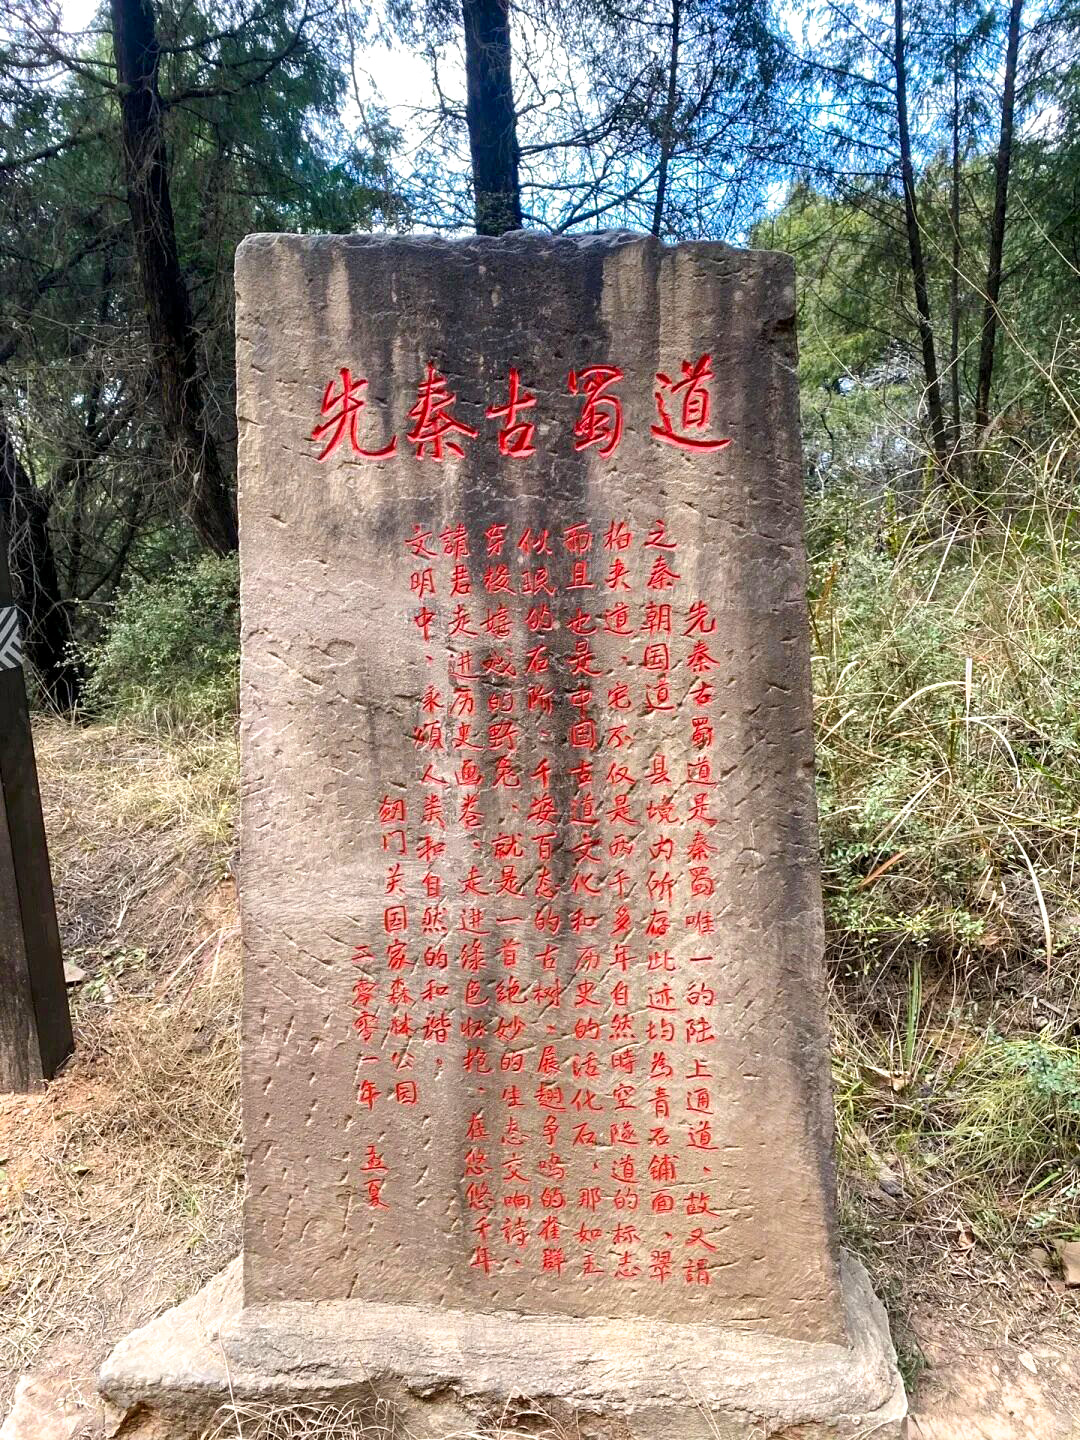 先秦古蜀道
先秦古蜀道是秦蜀唯一的陆上通道、故又谓
之秦朝国道 县境内所存此迹均为青石铺面、翠
柏夹道、它不仅是两千多年自然時空隧道的标志
而且也是中国古道文化和历史的活化石、那如玉
似珉的石阶、千姿百态的古树、展翅争鸣的雀群
穿梭嬉戏的野兔、就是一首绝妙的生态交响诗、
請君走进历史画卷、走进绿色怀抱、在悠悠千年
文明中、永頌人类和自然的和谐。
剑门关国家森林公园
二零零一年 孟夏